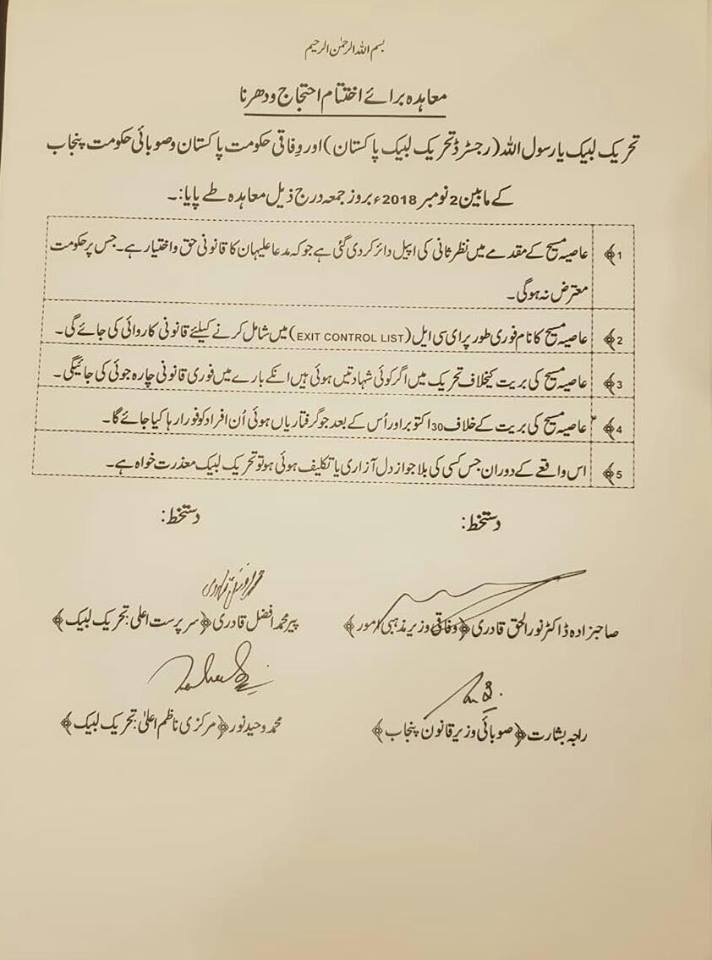 بسم اللہ الرحمٰن الرحیم
معاہدہ برائے اختتام احتجاج و دھرنا
تحریک لبیک یا رسول اللہ (رجسٹرڈ تحریک لبیک پاکستان) اور وفاقی حکومت پاکستان و صوبائی حکومت پنجاب
کے مابین 2 نومبر 2018ء بروز جمعہ درج ذیل معاہدہ طے پایا:۔
1﴾ عاصیہ مسیح کے مقدمے میں نظر ثانی کی اپیل دائر کر دی گئی ہے جو کہ مدعا علیہان کا قانونی حق و اختیار ہے۔ جس پر حکومت
معترض نہ ہوگی۔
2﴾ عاصیہ مسیح کا نام فوری طور پر ای سی ایل (EXIT CONTROL LIST) میں شامل کرنے کیلئے قانونی کاروائی کی جائے گی۔
3﴾ عاصیہ مسیح کی بریت کیخلاف تحریک میں اگر کوئی شہادتیں ہوئی ہیں انکے بارے میں فوری قانونی چارہ جوئی کی جائیگی۔
4﴾ عاصیہ مسیح کی بریت کے خلاف 30 اکتوبر اور اُس کے بعد جو گرفتاریاں ہوئی اُن افراد کو فوراً رہا کیا جائے گا۔
5﴾ اس واقعے کے دوران جس کسی کی بلا جواز دل آزاری یا تکلیف ہوئی ہو تو تحریک لبیک معذرت خواہ ہے۔
دستخط: دستخط:
صاحبزادہ ڈاکٹر نور الحق قادری ﴿وفاقی وزیر مذہبی امور﴾ پیر محمد افضل قادری ﴿سرپرست اعلی: تحریک لبیک﴾
راجہ بشارت ﴿صوبائی وزیر قانون پنجاب﴾ محمد وحید نور ﴿مرکزی ناظم اعلیٰ: تحریک لبیک﴾